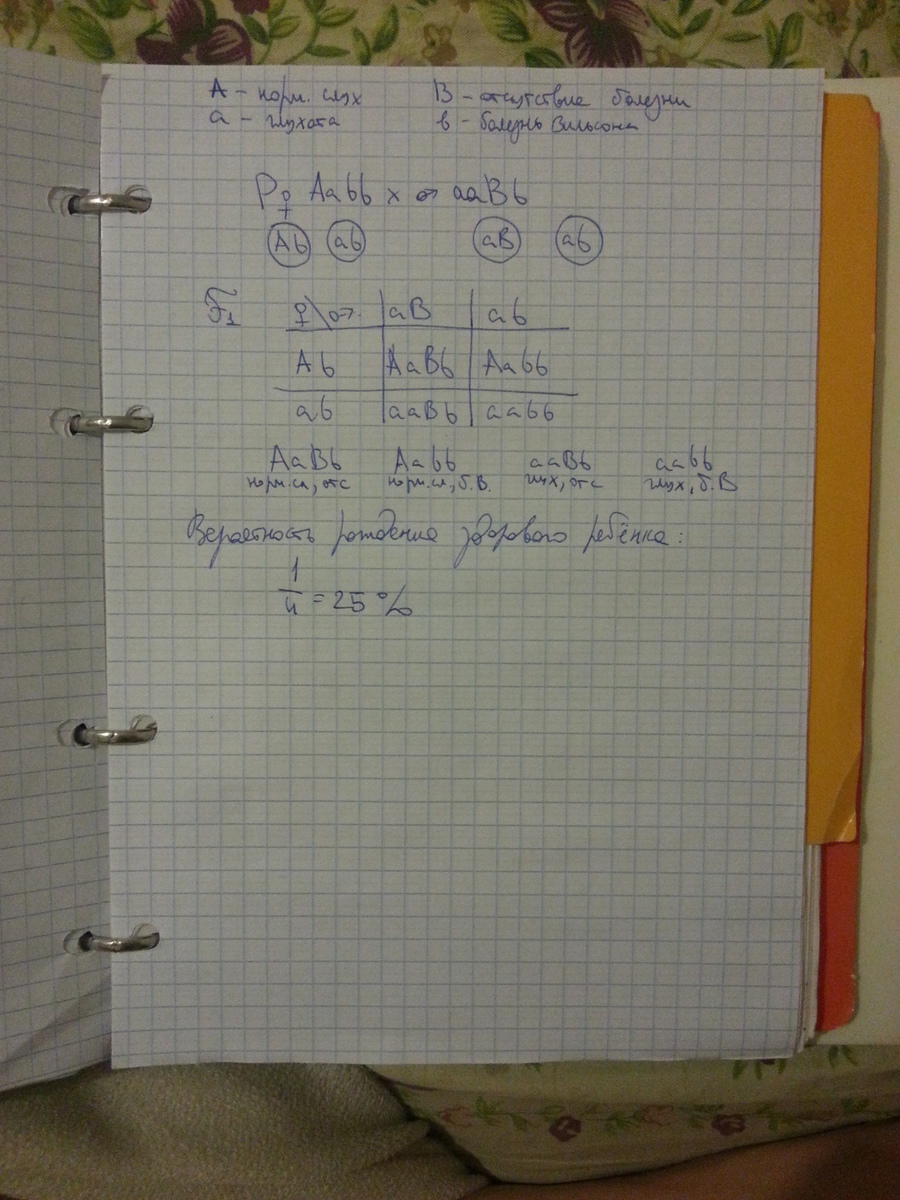 А – норм. слух В – отсутствие болезни
а – глухота в – болезнь Вильсона
P ♀ Aabb x ♂ aaBb
Ab ab aB ab
F1 ♀\♂ aB ab
Ab AaBb Aabb
ab aaBb aabb
AaBb Aabb aaBb aabb
норм.сл, отс норм.сл, б.В. глух, отс глух, б.В
Вероятность рождения здорового ребёнка:
1/4 = 25%